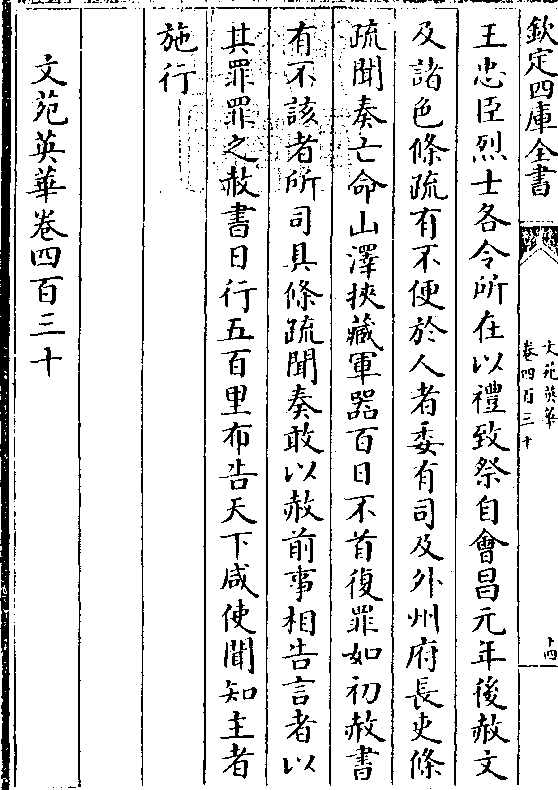 欽定四庫全書
文苑英華
卷四百三十
十四
王忠臣烈士各令所在以禮致祭自會昌元年後赦文
及諸色條疏有不便於人者委有司及外州府長吏條
疏聞奏亡命山澤挾藏軍器百日不首復罪如初赦書
有不該者所司具條疏聞奏敢以赦前事相告言者以
其罪罪之赦書日行五百里布告天下咸使聞知主者
施行
文苑英華卷四百三十